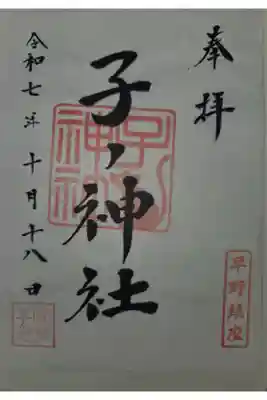 奉拝
早野鎮座
子ノ神社
子ノ神社
令和七年十月十八日